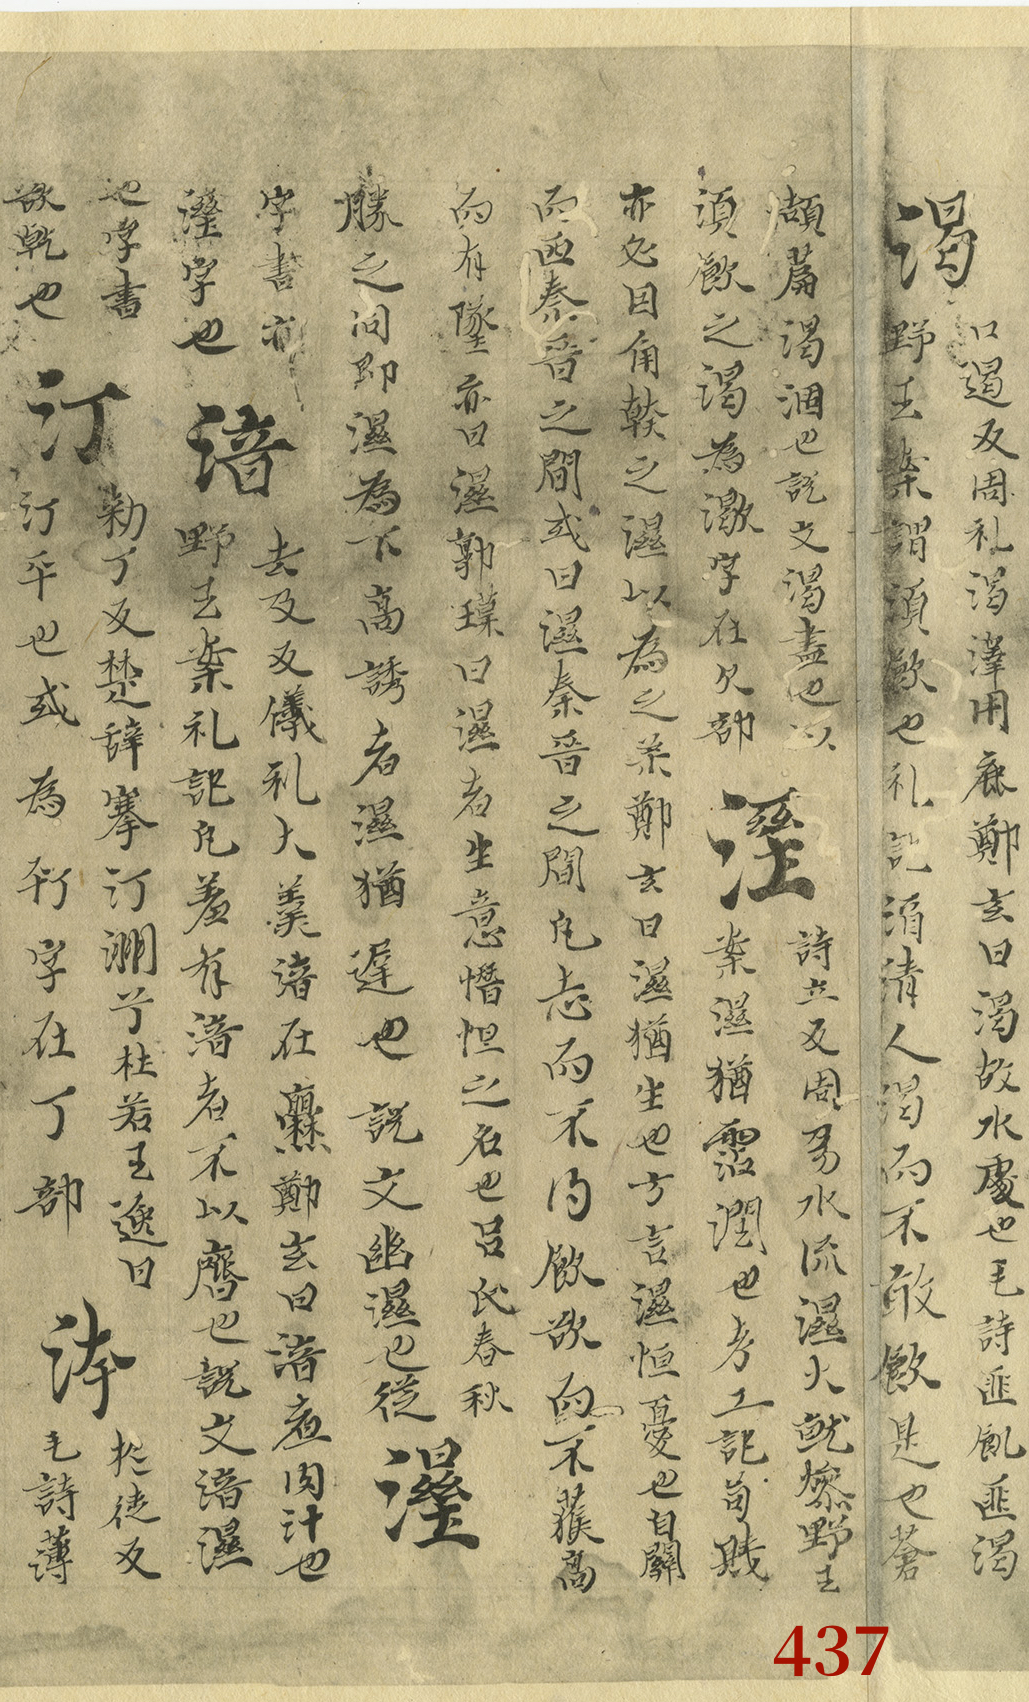 渴
口遏反周礼渴澤用鹿鄭玄曰渴故水處也毛詩匪飢匪渴
野王案謂須飲也礼記酒清人渴而不敢飲是也蒼
頡篇渴涸也說文渴盡也以
須飲之渴為㵣字在欠部
溼
詩立反周易水流濕火就燥野王
案濕猶霑潤也考工記苟賤
亦必因角幹之濕以為之柔鄭玄曰濕猶生也方言濕恒憂也自關
而西秦晉之間或曰濕秦晉之間凡志而不得飲欲而不獲高
而有墜亦曰濕郭璞曰濕者坐意憯怛之名也呂氏春秋
勝之同即濕為下高誘者濕猶遲也說文幽濕也從
字書亦
字也
湆
去及反儀礼大羹湆在爨鄭玄曰湆煮肉汁也
野王案礼記凡羞有湆者不以齊也說文湆濕
也字書
欲乾也
汀
勑丁反楚辞搴汀洲兮杜若王逸曰
汀平也或為字在丁部
於徒反
毛詩薄
437